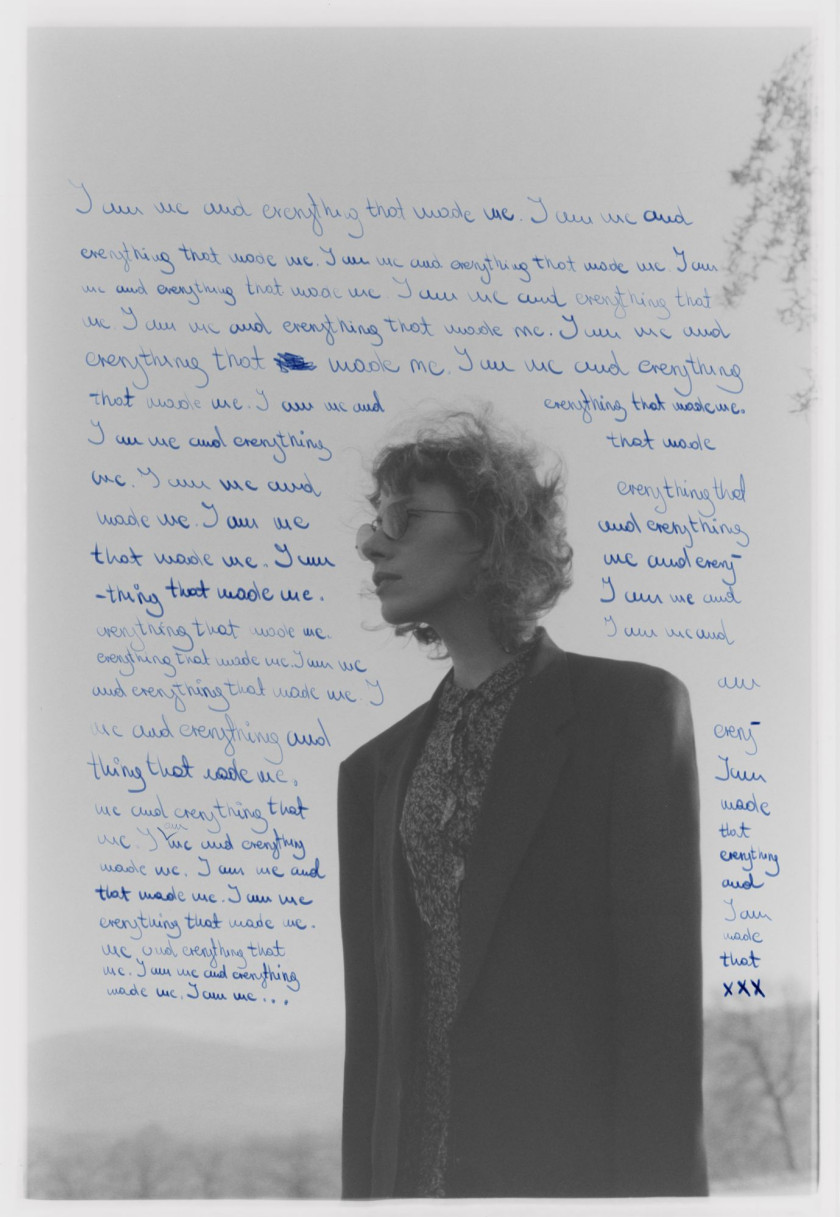 I am me and everything that made me. I am me and
everything that made me. I am me and everything that made me. I am
me and everything that made me. I am me and everything that
me. I am me and everything that made me. I am me and
everything that made me. I am me and everything
that made me. I am me and everything that made me.
I am me and everything that made
me. I am me and everything that
made me. I am me and everything
that made me. I am me and every-
-thing that made me. I am me and
everything that made me. I am me and
everything that made me. I am me
and everything that made me. I am
me and everything and every-
thing that made me. I am
me and everything that made
me. I am me and everything that
made me. I am me and everything
that made me. I am me and
everything that made me. I am
me and everything that made
me. I am me and everything that
made me. I am me... xxx